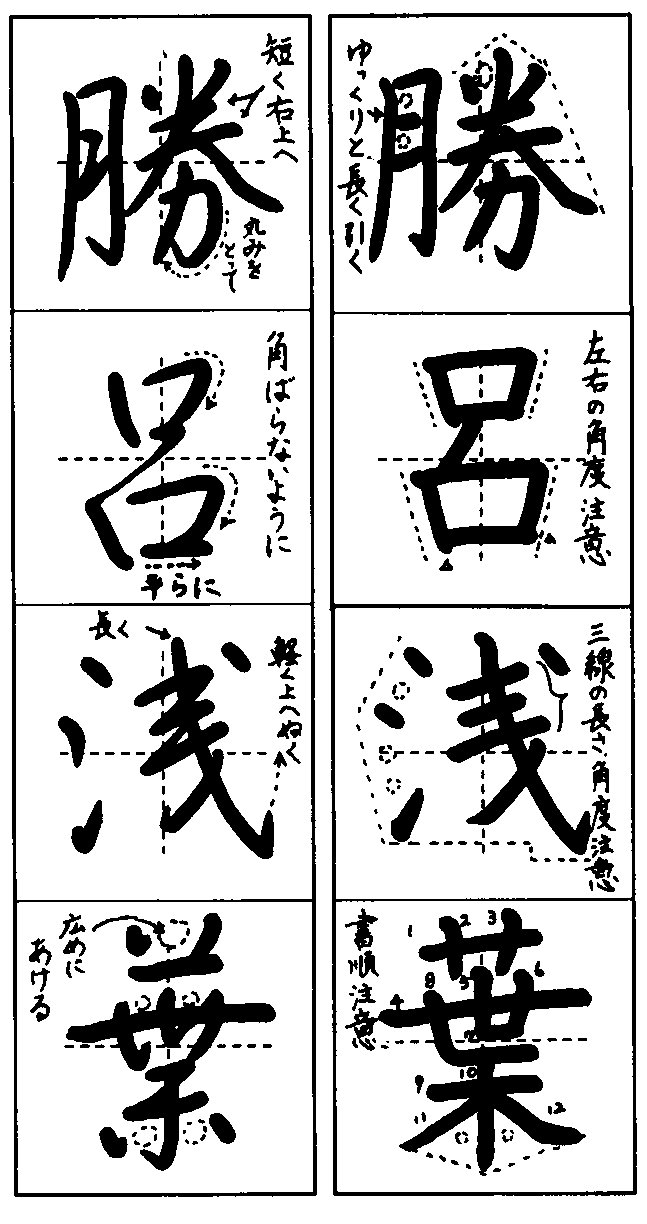 勝
ゆっくりと長く引く
呂
左右の角度注意
浅
三線の長さ、角度注意
葉
書順注意
1
2
3
4
5
6
7
8
9
10
11
12
勝
短く右上へ
丸みをとって
呂
角ばらないように
平らに
浅
長く
軽く上へぬく
葉
広めに
あける